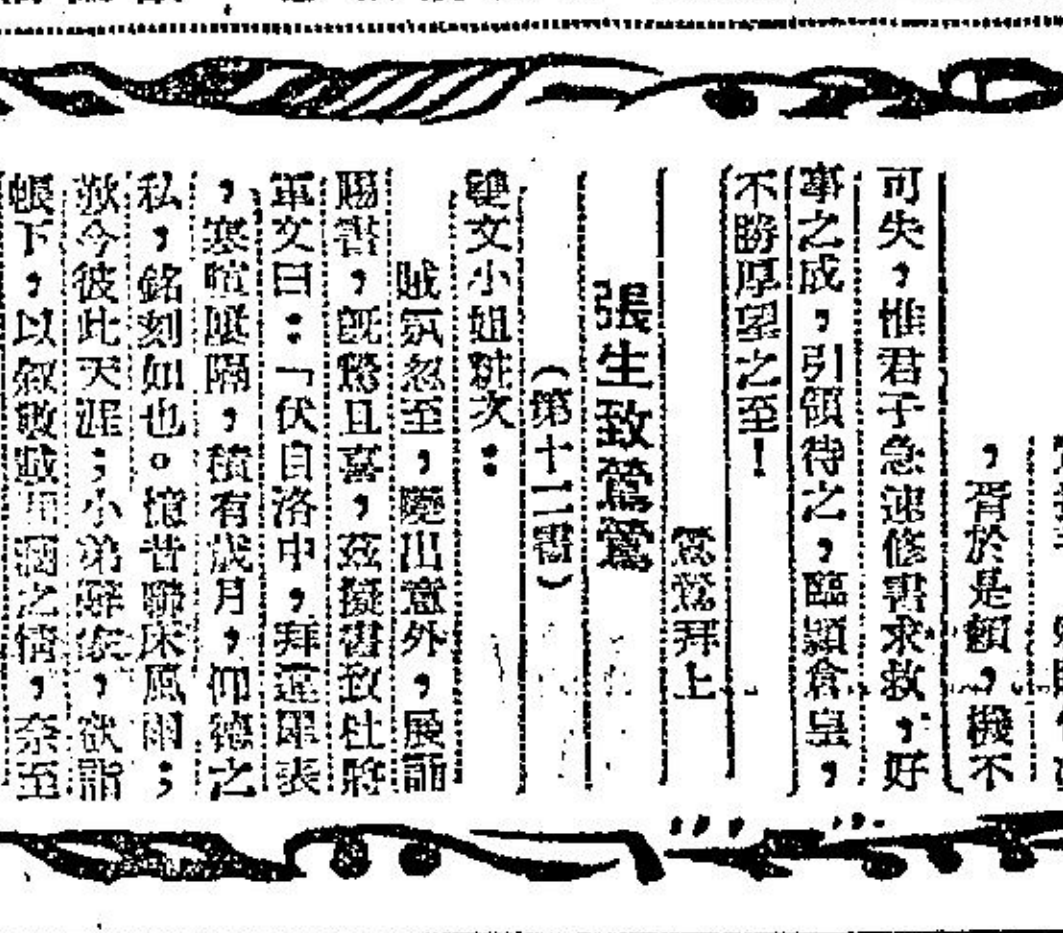 ，胥於是賴，機不
可失，惟君子急速修書求救，好
事之成，引領待之，臨穎倉皇，
不勝厚望之至！
鶯鶯拜上
張生致鶯鶯
（第十二書）
雙文小姐粧次：
賊氛忽至，出意外，展誦
賜書，既驚且喜，茲擬書致杜將
軍文曰：「伏自洛中，拜違犀表
，寒暄屢隔，積有歲月，仰德之
私，銘刻如也。憶昔聯床風雨；
歎今彼此天涯；小弟辭家，欲詣
帳下，以叙數載間濶之情，奈至